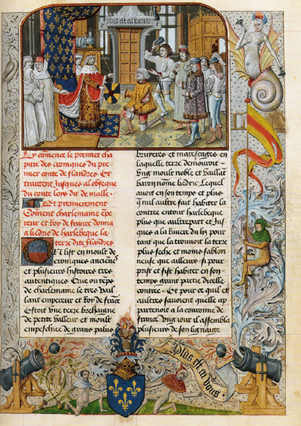 plus est en vous
Cy comence le premier cha
pitre des croniques du pre
mier conte de flandres Et
traittent jusques al obseque
du conte loys dit de malle
Et premierement
Coment charlemaine Em
pereur et Roy de france donna
a liedric de harlebeque la
terre dite flandres
Et list en moult de
croniques anciene
et plusieurs histoires tres
autentiques Que ou temps
de charlemaine le tres vail
lant empereur et Roy de france
Estoit une terre brehaigne
de petite valleur et moult
empeschie de grans palus
bruyeres et marescages en
laquelle terre demouroit
Ung moult noble et vaillat
baron nome liedric Lequel
avoit en son temps et plus
quil aultre fait habiter la
contree entour harlebeque
plus que aultrepart et jus
ques a la riviere du lis pour
tant que la trouvoit la terre
plus seche et moins sablon
neuse que ailleurs si pour
fist et fist habiter en son
temps grant partie dicelle
contree Et pour ce quil et
aultres savoient quelle ap
partenoit a la couronne de
france Ung jour assembla
plusieurs de son lignaige
plus est en vous